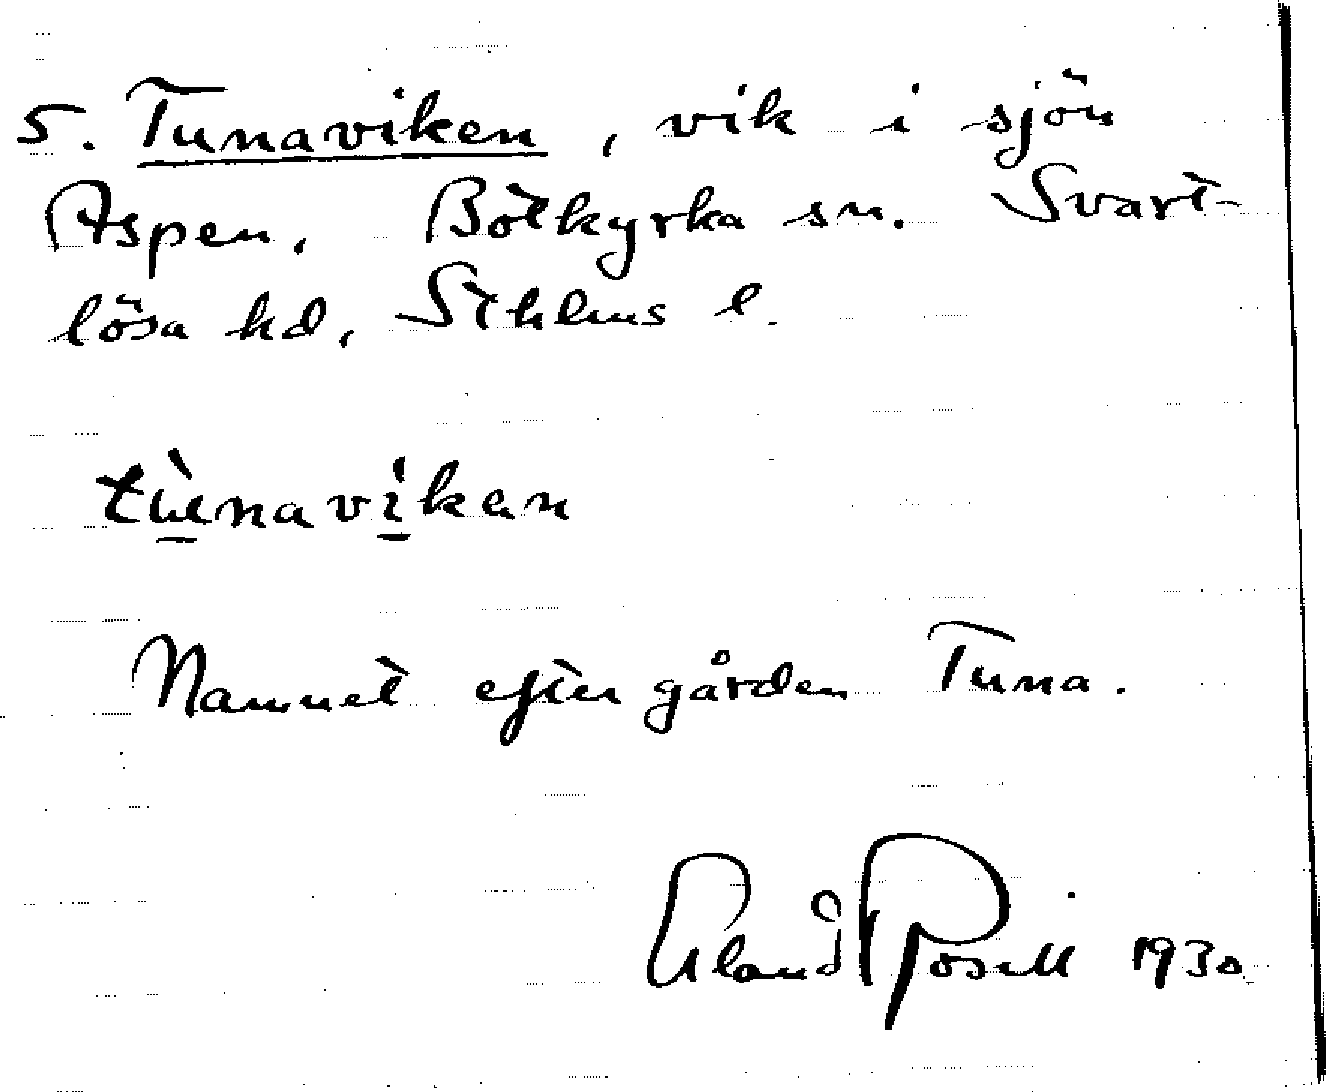 5. Tunaviken, vik i sjön
Aspen, Botkyrka sn. Svart-
lösa hd, Sthlms l.
tùnavikan
Namnet efter gården Tuna.
Erland Rosell 1930